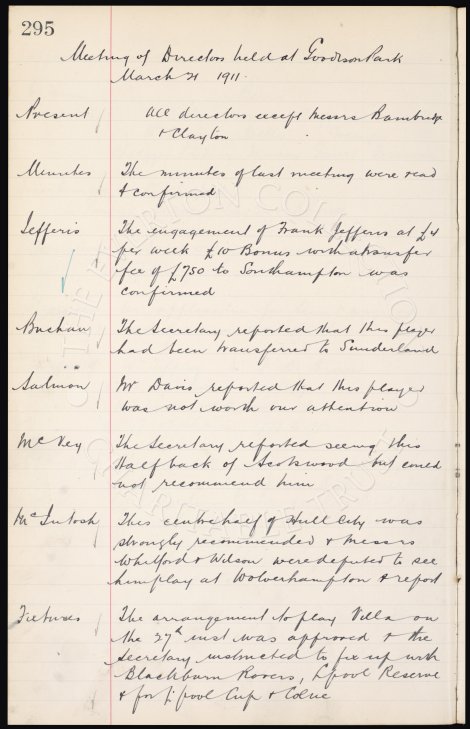 295
Meeting of Directors held at Goodison Park
March 21 1911.
Present All directors except Messrs Bainbridge
& Clayton
Minutes The minutes of last meeting were read
& confirmed
Jefferis The engagement of Frank Jefferis at £4
per week £10 Bonus with a transfer
fee of £750 to Southampton was
confirmed
Buchan The Secretary reported that this player
had been transferred to Sunderland
Salmon Mr Davis reported that this player
was not worth our attention
McVey The Secretary reported seeing this
Halfback of Scotswood but could
not recommend him
McIntosh This centre half of Hull City was
strongly recommended & Messrs
Whitford & Wilson were deputed to see
him play at Wolverhampton & report
Fixtures The arrangement to play Villa on
the 27th inst was approved & the
Secretary instructed to fix up with
Blackburn Rovers, L'pool Reserve
& for L'pool Cup & Colne
THE EVERTON COLLECTION
CHARITABLE TRUST